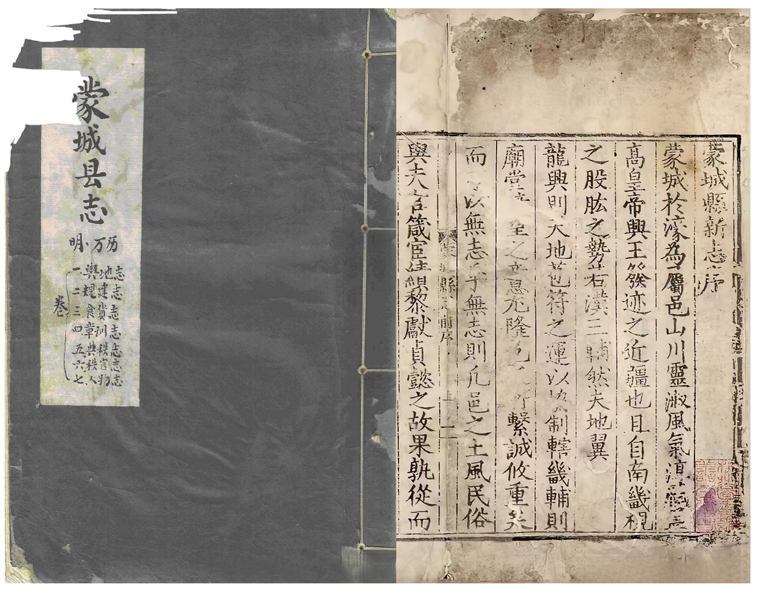 蒙城县志
明·万历
卷
一 輿地志
二 建志
三 食貨志
四 章訓志
五 典秩志
六 秩官志
七 人物志
蒙城縣新志序
蒙城於濠為屬邑山川靈淑風氣
高皇帝興王發迹之近疆也且自南畿視
之股肱之勢若漢三輔然夫地翼
龍興則天地苞符之運以制轄畿輔則
廟堂之意尤隆繫誠攸重矣
而以無志乎無志則凡邑之土風民俗
與夫言箴宦績黎獻貞懿之故果孰從而